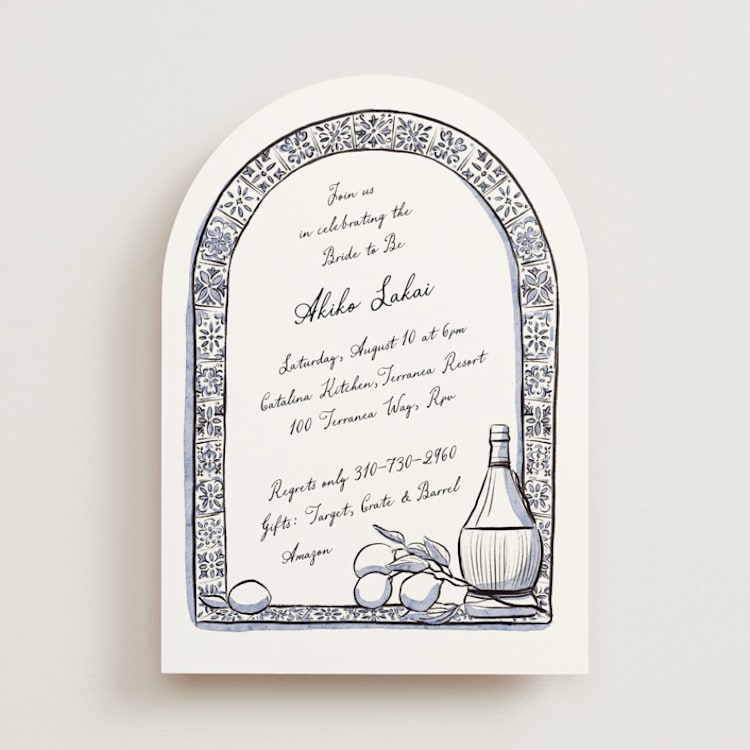 Join us
in celebrating the
Bride to Be
Akiko Lakai
Saturday, August 10 at 6pm
Catalina Kitchen, Terranea Resort
100 Terranea Way, Rpv
Regrets only 310-730-2960
Gifts: Target, Crate & Barrel
Amazon